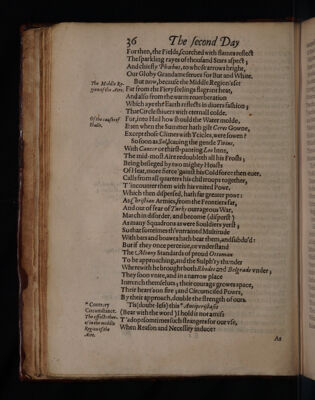 36 The second Day
For then, the Fields, scorched with flames reflect
The sparkling rayes of thousand Stars aspect;
And chiefly Phœbus, to whose arrows bright,
Our Globy Grandame serves for But and White.
The Middle Re-
gion of the Aire.
But now, because the Middle Region's set
Far from the Fiery seelings flagrant heat,
And also from the warm reverberation
Which aye the Earth reflects in divers fashion;
That Circle shivers with eternall colde.
Of the causes of
Haile.
For, into Hail how should the Water molde,
Even when the Summer hath gilt Ceres Gowne,
Except those Climes with Ycicles, were sowen?
So soon as Sol, leauing the gentle Twins,
With Cancer or thirst-panting Leo Inns,
The mid-most Aire redoubleth all his Frosts;
Being besieged by two mighty Hoasts
Of Heat, more fierce 'gainst his Cold force then euer,
Calls from all quarters his chil troops together,
T'incounter them with his vnited Powr,
Which then dispersed, hath far greater powr:
As Christian Armies, from the Frontiers far,
And out of fear of Turks outrageous War,
March in disorder, and become (disperst)
As many Squadrons as were Souldiers yerst;
So that somtimes th'vntrained Multitude
With bats and boawes hath beat them, and subdu'd:
But if they once perceive, or vnderstand
The Moony Standards of proud Ottoman
To be approaching, and the Sulph'ry thunder
Wherewith he brought both Rhodes and Belgrade vnder;
They soon vnite, and in a narrow place
Intrench themselues; their courage growes apace,
Their heart's on fire; and Circumcised Powrs,
By their approach, double the strength of ours.
* Contrary
Circumstance.
The effects ther-
of in the middle
Region of the
Aire.
Tis (doubt-less) this * Antiperistasis
(Bear with the word) I hold it not amiss
T'adopt somtimes such strangers for our vse,
When Reason and Necessity induce:
As